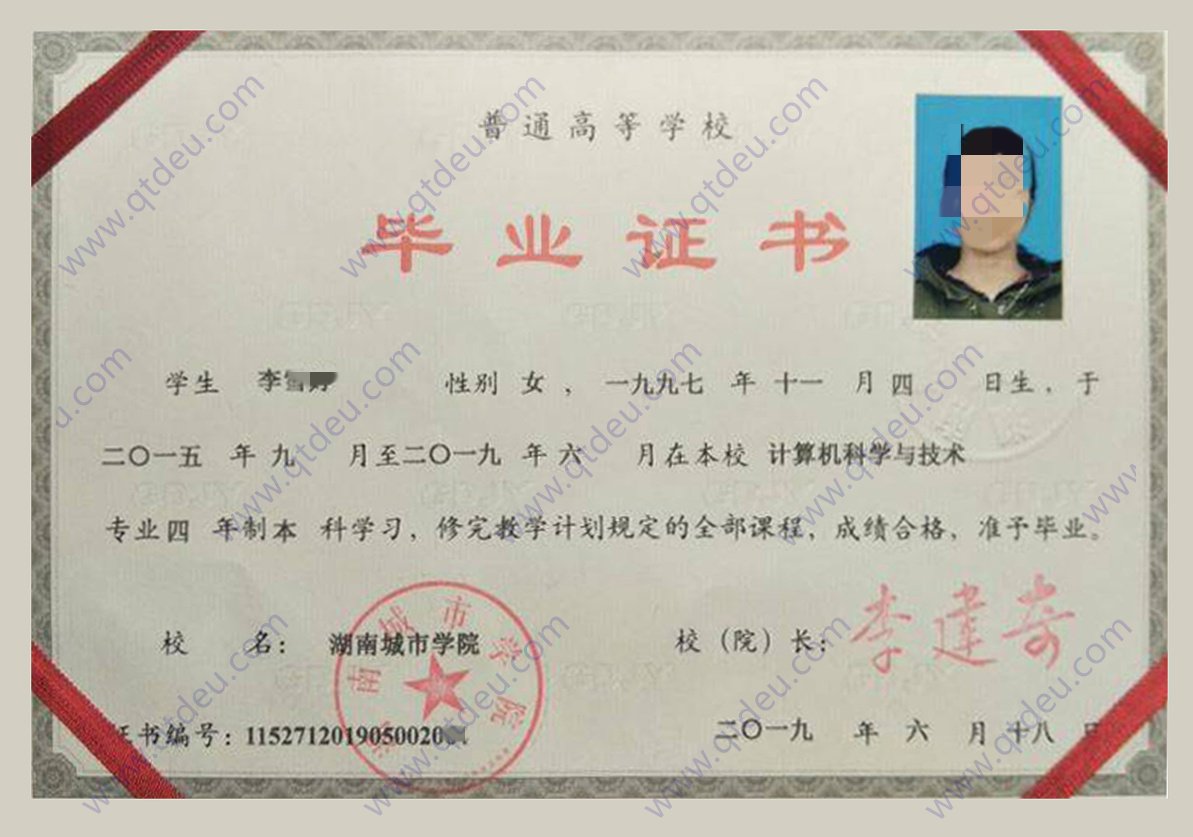 普通高等学校
毕业证书
学生 李雪 性别 女 ，一九九七 年 十一 月 四 日生，于
二〇一五 年 九 月至二〇一九 年 六 月在本校 计算机科学与技术
专业 四 年制 本 科学习，修完教学计划规定的全部课程，成绩合格，准予毕业。
校 名： 湖南城市学院
校（院）长： 李建奇
湖南城市学院
证书编号：1152712019050020
二〇一九 年 六 月 十八 日
www.qtdeu.com